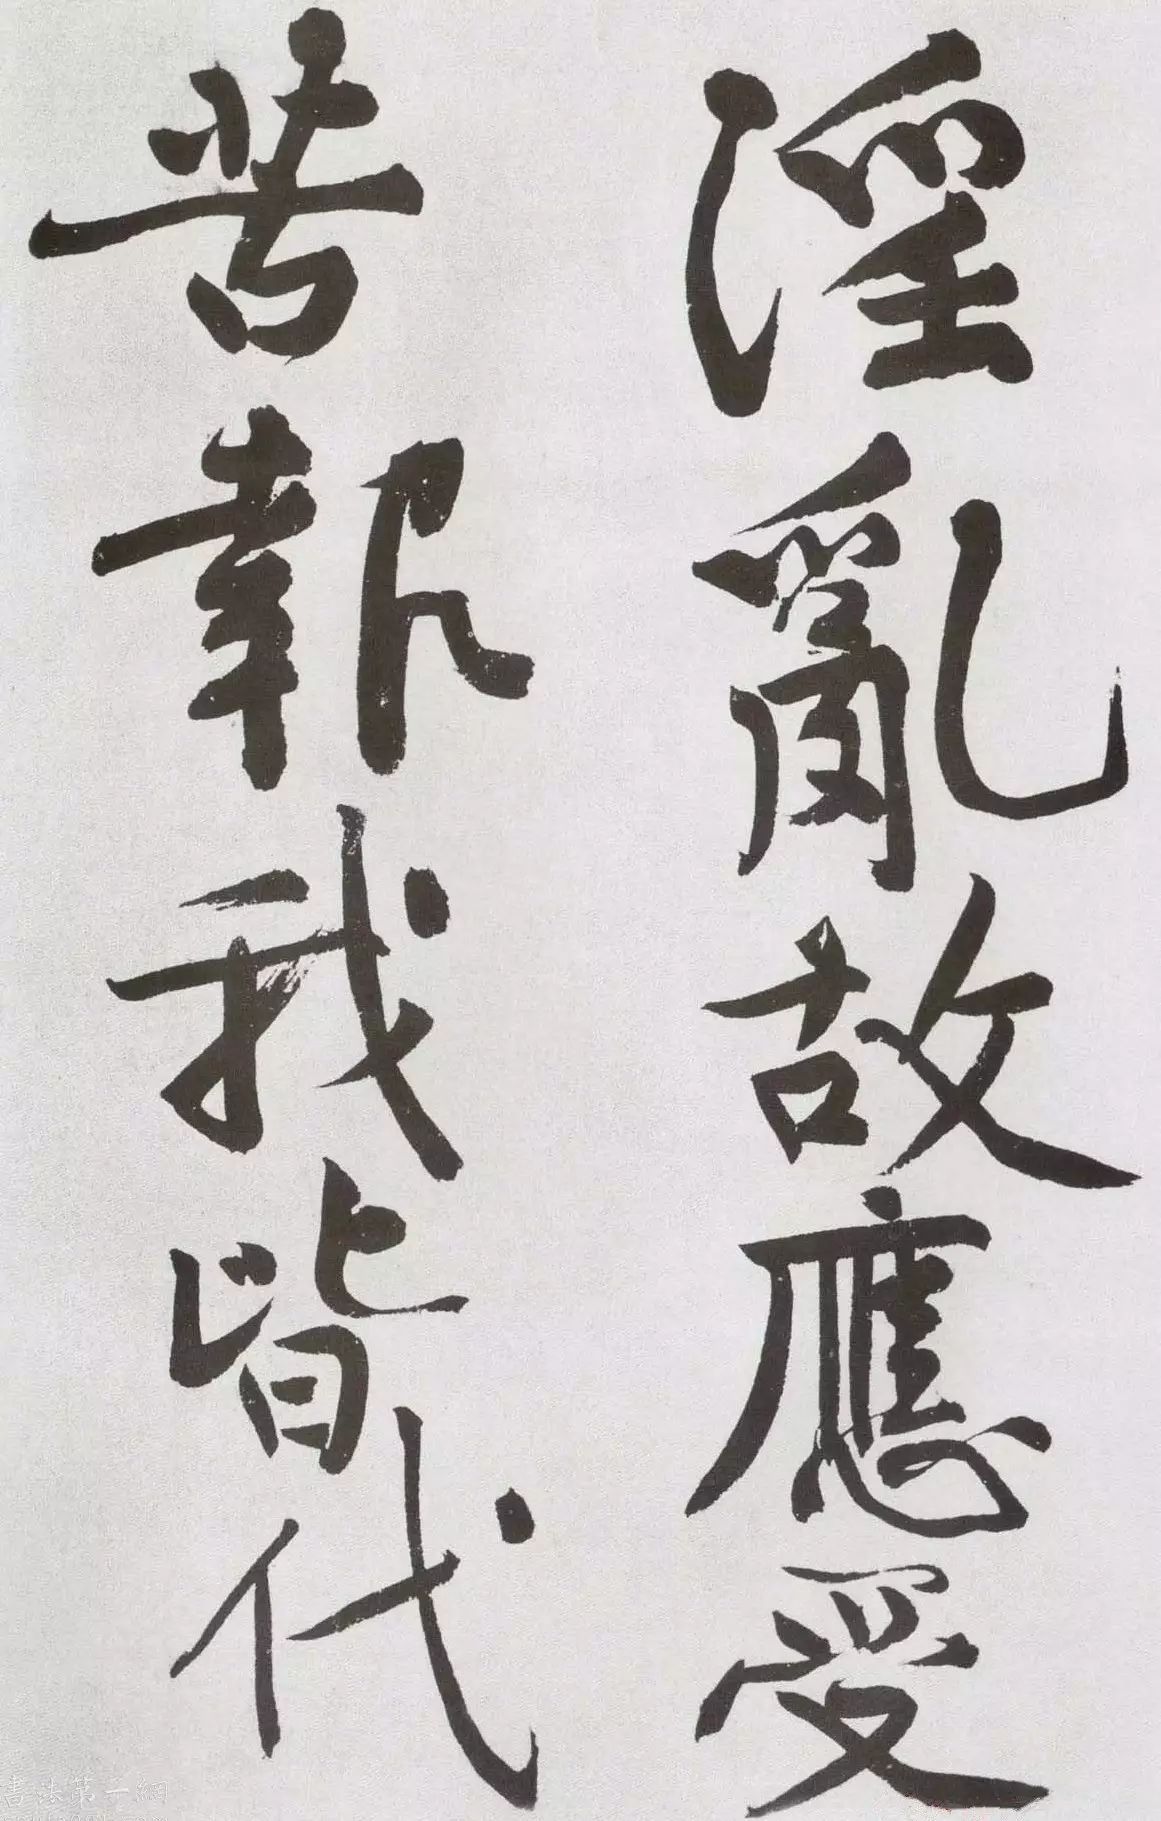 淫亂故應受
苦報我皆代
書法第一網